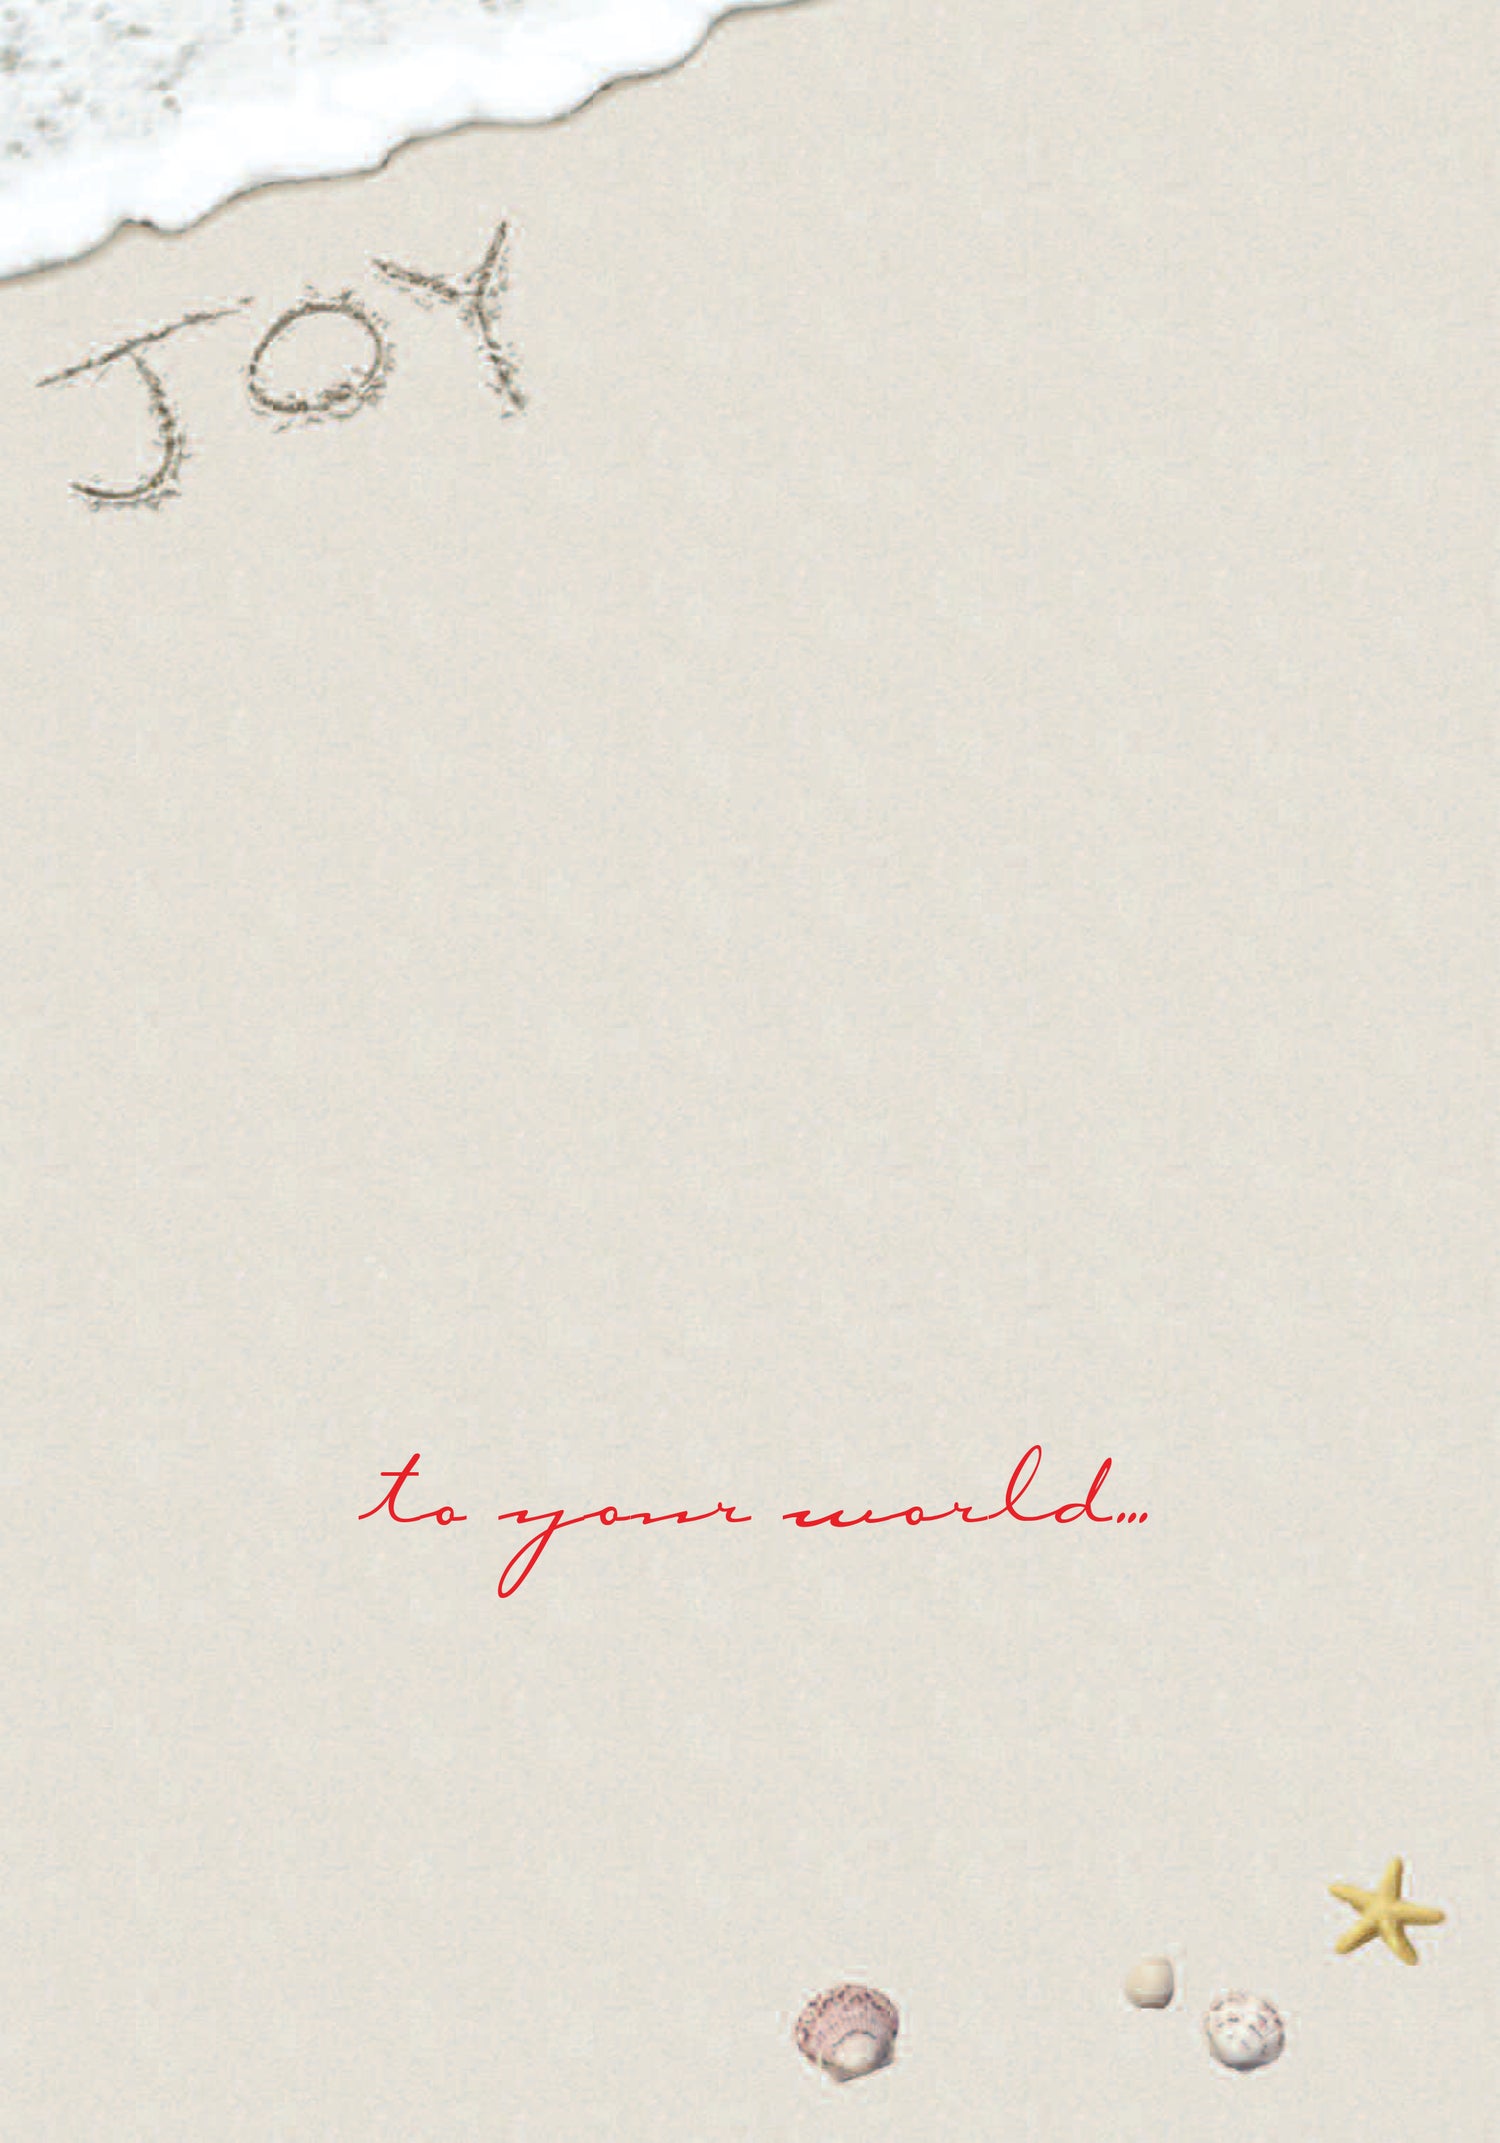 JOY
to your world...